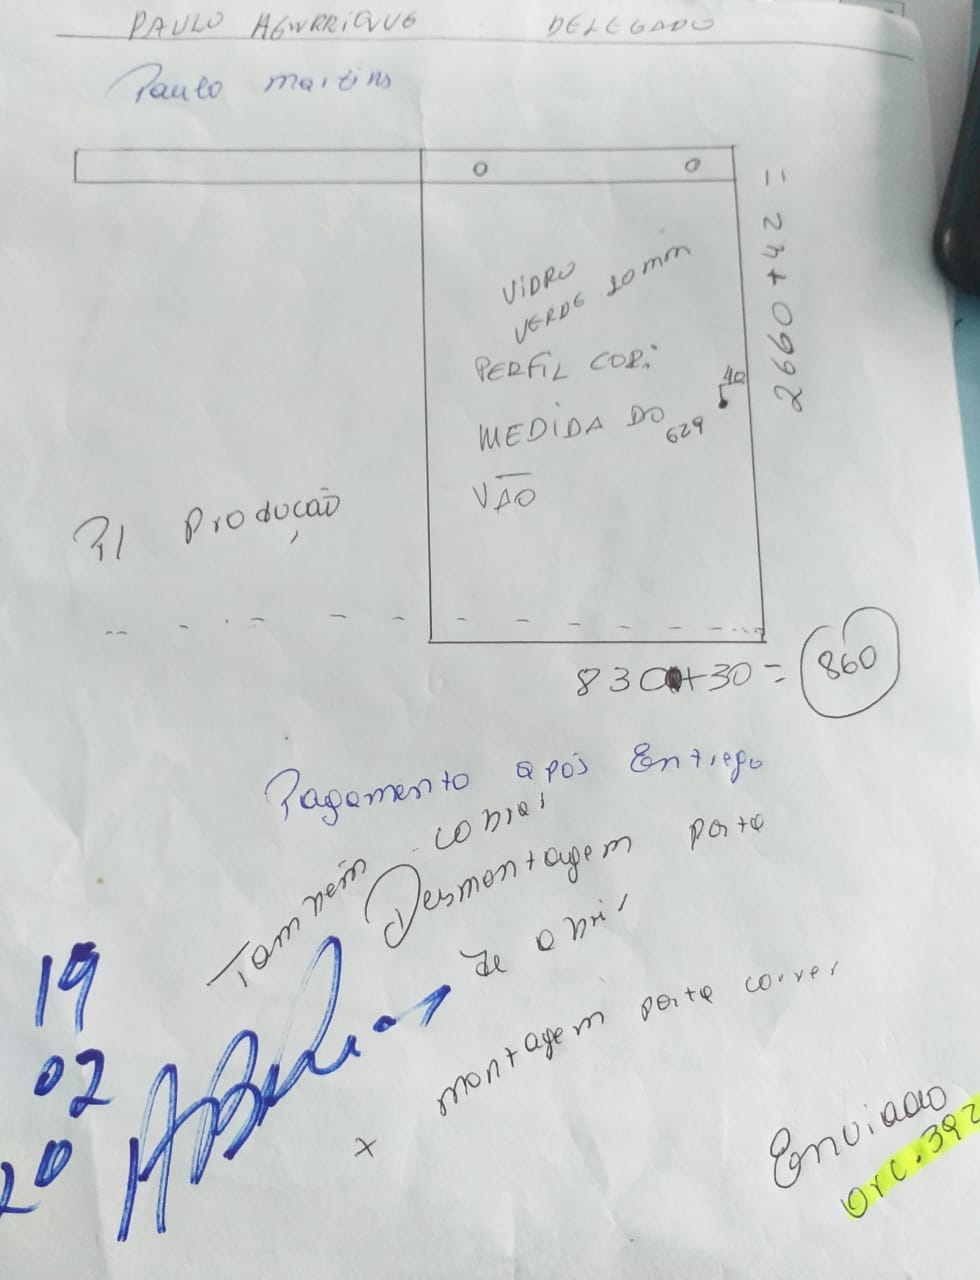 PAULO HENRRIQUE DELEGADO
Paulo Martins
VIDRO
VERDE 10mm
PERFIL COR:
MEDIDA DO
VÃO
40
629
2660+22 =
P/ Produção
830+30 = 860
Pagamento após Entrega
Tamném cobrar
Desmontagem porta
de abrir
x montagem porta correr
19
02
20
Enviado
orc. 392